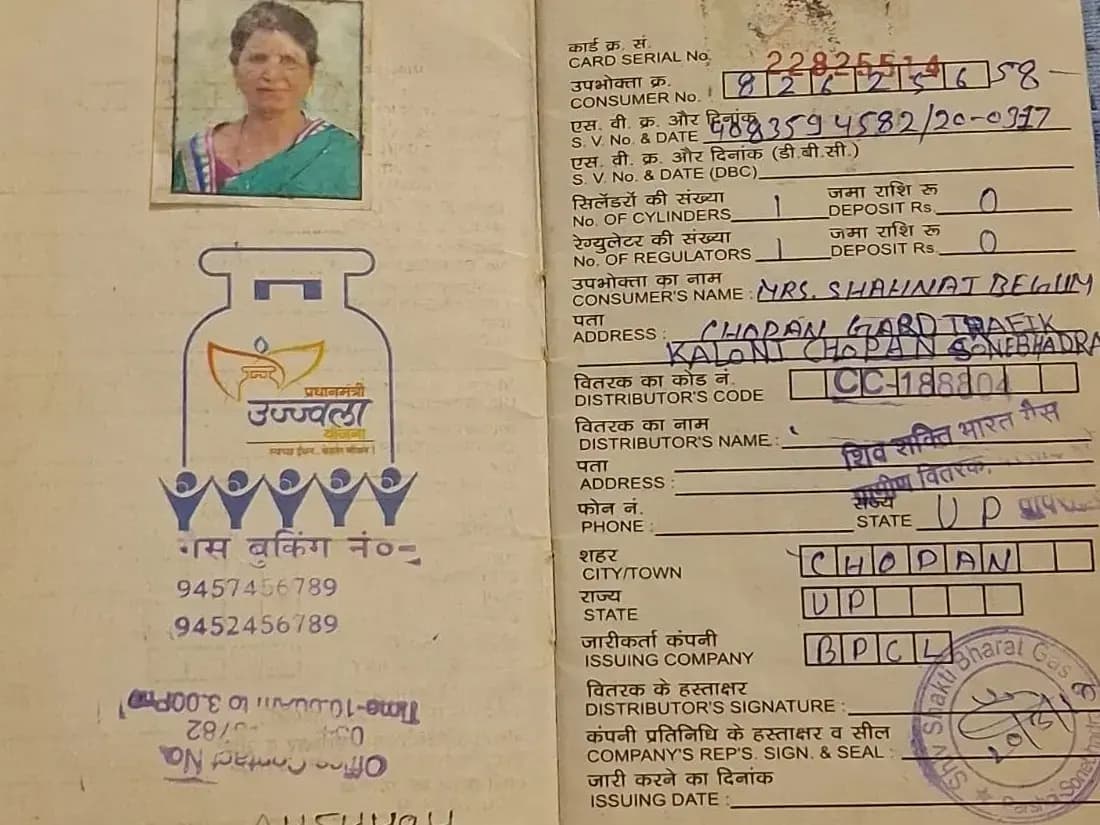 प्रधानमंत्री
उज्ज्वला
योजना
स्वच्छ ईंधन, बेहतर जीवन।
गैस बुकिंग नं०-
9457456789
9452456789
Office Contact No.
82
Time-10.00am to 3.00Pm
कार्ड क्र. सं.
CARD SERIAL No. 22825514
उपभोक्ता क्र.
CONSUMER No. : 8262556 58
एस. वी. क्र. और दिनांक
S. V. No. & DATE
एस. वी. क्र. और दिनांक (डी.बी.सी.)
S. V. No. & DATE (DBC)
सिलेंडरों की संख्या जमा राशि रू
No. OF CYLINDERS 1 DEPOSIT Rs. 0
रेग्युलेटर की संख्या जमा राशि रू
No. OF REGULATORS 1 DEPOSIT Rs. 0
उपभोक्ता का नाम
CONSUMER'S NAME : MRS. SHAHNAJ BEGUM
पता
ADDRESS : CHOPAN GARD TRAFIK
KALONI CHOPAN SONEBHADRA
वितरक का कोड नं.
DISTRIBUTOR'S CODE CC-188804
वितरक का नाम
DISTRIBUTOR'S NAME : शिव शक्ति भारत गैस
पता ग्रामीण वितरक.
ADDRESS :
फोन नं. राज्य
PHONE : STATE UP
शहर
CITY/TOWN CHOPAN
राज्य
STATE UP
जारीकर्ता कंपनी
ISSUING COMPANY BPCL
वितरक के हस्ताक्षर
DISTRIBUTOR'S SIGNATURE :
कंपनी प्रतिनिधि के हस्ताक्षर व सील
COMPANY'S REP'S. SIGN. & SEAL :
जारी करने का दिनांक
ISSUING DATE :
Shiv Shakti Bharat Gas